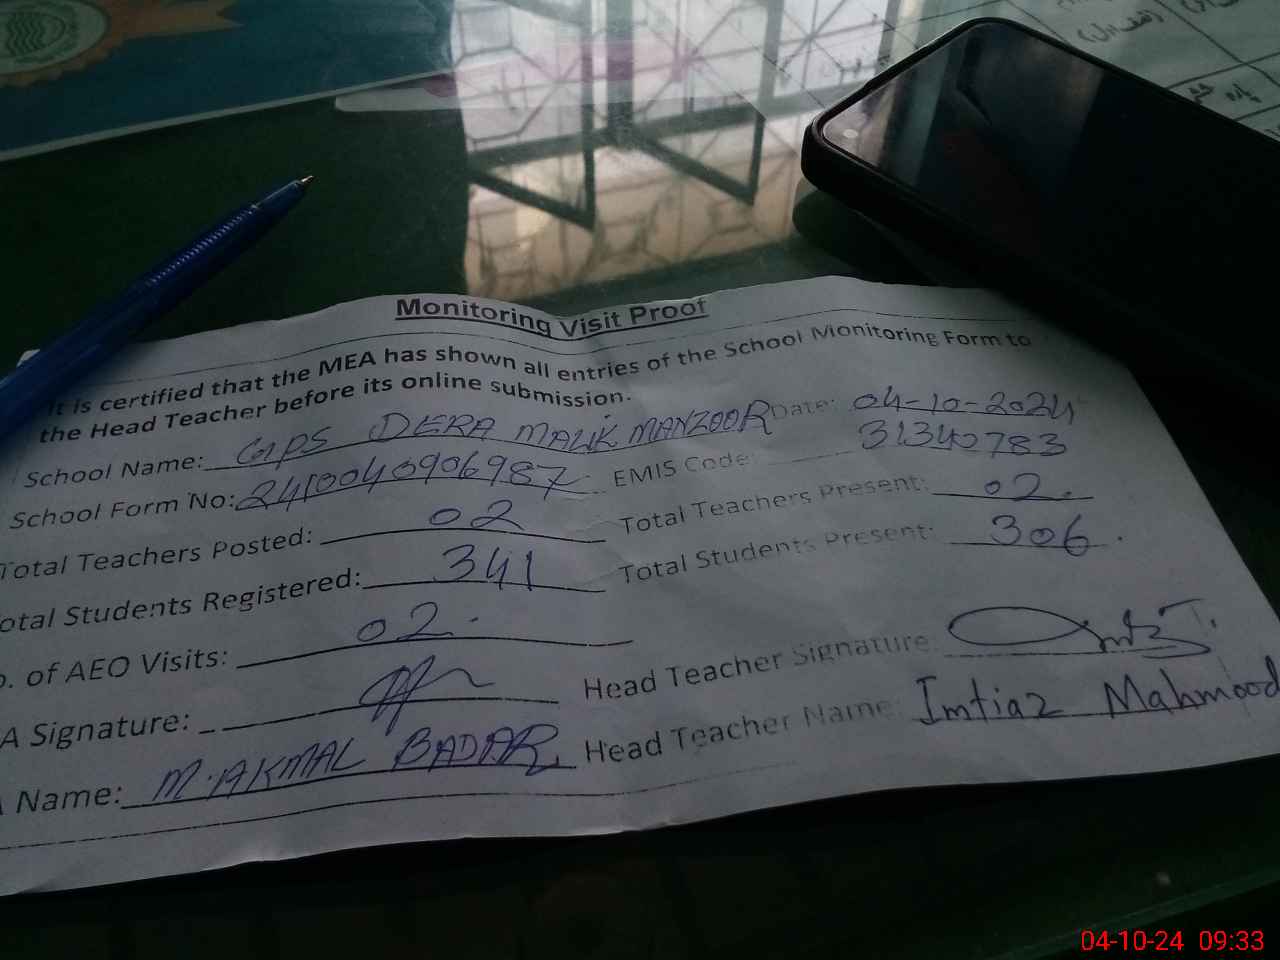 (صف اول)
Monitoring Visit Proof
It is certified that the MEA has shown all entries of the School Monitoring Form to
the Head Teacher before its online submission.
School Name: GPS DERA MALIK MANZOOR Date: 04-10-2024
School Form No: 2410040906987 EMIS Code: 31340783
Total Teachers Posted: 02 Total Teachers Present: 02.
Total Students Registered: 341 Total Students Present: 306.
o. of AEO Visits: 02.
A Signature: Head Teacher Signature:
A Name: M. AKMAL BADAR Head Teacher Name: Imtiaz Mahmood
04-10-24 09:33